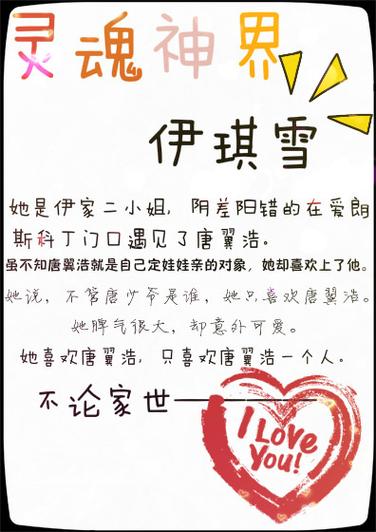 灵魂神界
伊琪雪
她是伊家二小姐，阴差阳错的在爱朗
斯科丁门口遇见了唐翼浩。
虽不知唐翼浩就是自己定娃娃亲的对象，她却喜欢上了他。
她说，不管唐少爷是谁，她只喜欢唐翼浩。
她脾气很大，却意外可爱。
她喜欢唐翼浩，只喜欢唐翼浩一个人。
不论家世——
I Love
You!